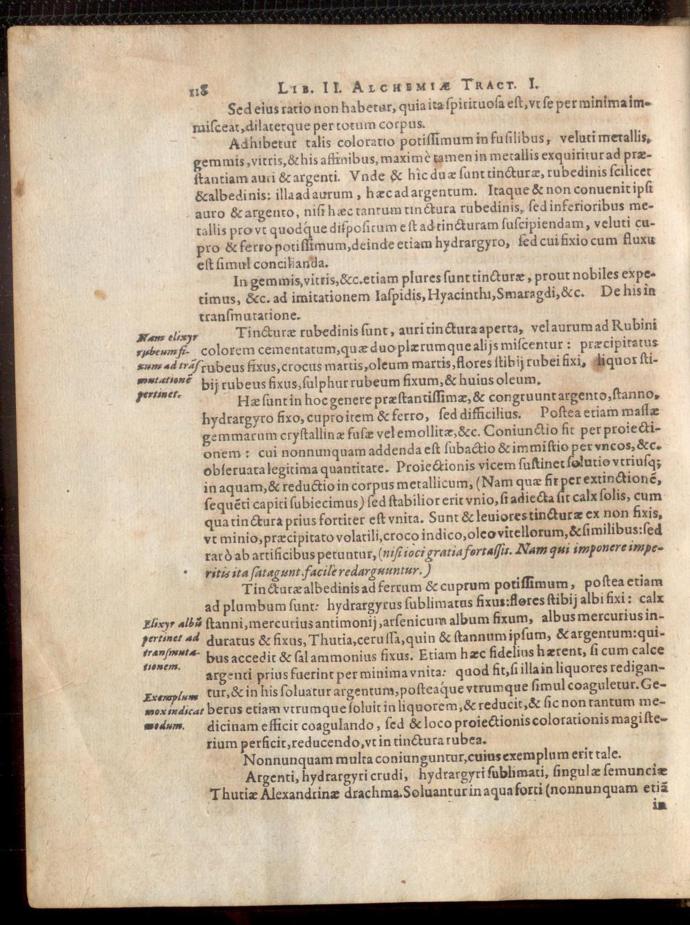 118 LIB. II. ALCHEMIÆ TRACT. I.
Sed eius ratio non habetur, quia ita spirituosa est, vt se per minima im-
misceat, dilateturque per totum corpus.
Adhibetur talis coloratio potissimum in fusilibus, veluti metallis,
gemmis, vitris, & his affinibus, maximè tamen in metallis exquiritur ad præ-
stantiam auri & argenti. Vnde & hîc duæ sunt tincturæ, rubedinis scilicet
& albedinis: illa ad aurum, hæc ad argentum. Itaque & non conuenit ipsi
auro & argento, nisi hæc tantum tinctura rubedinis, sed inferioribus me-
tallis pro vt quodque dispositum est ad tincturam suscipiendam, veluti cu-
pro & ferro potissimum, deinde etiam hydrargyro, sed cui fixio cum fluxu
est simul concilianda.
In gemmis, vitris, &c. etiam plures sunt tincturæ, prout nobiles expe-
timus, &c. ad imitationem Iaspidis, Hyacinthi, Smaragdi, &c. De his in
transmutatione.
Tincturæ rubedinis sunt, auri tinctura aperta, vel aurum ad Rubini
colorem cementatum, quæ duo plærumque alijs miscentur: præcipitatus
rubeus fixus, crocus martis, oleum martis, flores stibij rubei fixi, liquor sti-
bij rubeus fixus, sulphur rubeum fixum, & huius oleum.
Nam elixyr
rubeum fi-
xum ad trãs
mutationẽ
pertinet.
Hæ sunt in hoc genere præstantissimæ, & congruunt argento, stanno,
hydrargyro fixo, cupro item & ferro, sed difficilius. Postea etiam massæ
gemmarum crystallinæ fusæ vel emollitæ, &c. Coniunctio fit per proiecti-
onem: cui nonnunquam addenda est subactio & immistio per vncos, &c.
obseruata legitima quantitate. Proiectionis vicem sustinet solutio vtriusq;
in aquam, & reductio in corpus metallicum, (Nam quæ fit per extinctionẽ,
sequẽti capiti subiecimus) sed stabilior erit vnio, si adiecta sit calx solis, cum
qua tinctura prius fortiter est vnita. Sunt & leuiores tincturæ ex non fixis,
vt minio, præcipitato volatili, croco indico, oleo vitellorum, & similibus: sed
rarò ab artificibus petuntur, (nisi ioci gratia fortassit. Nam qui imponere impe-
ritis ita satagunt, facile redarguuntur.)
Tincturæ albedinis ad ferrum & cuprum potissimum, postea etiam
ad plumbum sunt: hydrargyrus sublimatus fixus: flores stibij albi fixi: calx
stanni, mercurius antimonij, arsenicum album fixum, albus mercurius in-
duratus & fixus, Thutia, cerussa, quin & stannum ipsum, & argentum: qui-
bus accedit & sal ammonius fixus. Etiam hæc fidelius hærent, si cum calce
argenti prius fuerint per minima vnita: quod fit, si illa in liquores redigan-
tur, & in his soluatur argentum, posteaque vtrumque simul coaguletur. Ge-
berus etiam vtrumque soluit in liquorem, & reducit, & sic non tantum me-
dicinam efficit coagulando, sed & loco proiectionis colorationis magiste-
rium perficit, reducendo, vt in tinctura rubea.
Elixyr albũ
pertinet ad
transmuta-
tionem.
Exemplum
mox indicat
modum.
Nonnunquam multa coniunguntur, cuius exemplum erit tale.
Argenti, hydrargyri crudi, hydrargyri sublimati, singulæ semunciæ
Thutiæ Alexandrinæ drachma. Soluantur in aqua forti (nonnunquam etiã
in